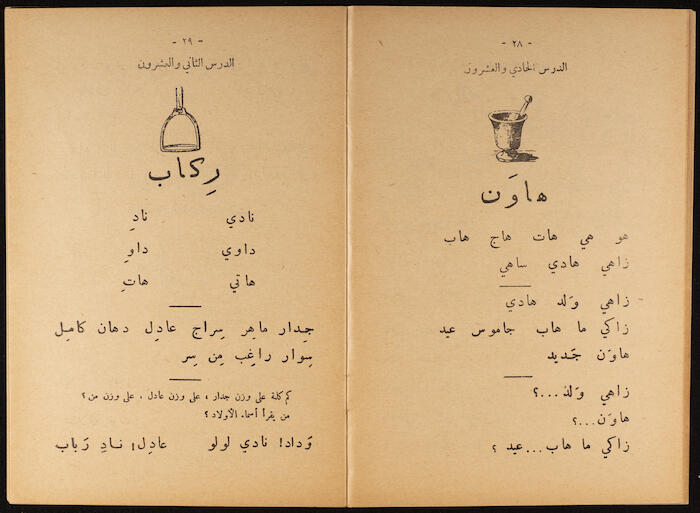 - ٢٨ -
الدرس الحادي والعشرون
هاوَن
هو هي هات هاج هاب
زاهي هادي ساهي
زاهي وَلد هادي
زاكي ما هاب جاموس عيد
هاوَن جَديد
زاهي وَلد...؟
هاوَن...؟
زاكي ما هاب...عيد ؟
- ٢٩ -
الدرس الثاني والعشرون
رِكاب
نادي نادِ
داوي داوِ
هاتي هاتِ
جِدار ماهِر سِراج عادِل دهان كامِل
سِوار راغِب مِن سِر
كم كلمة على وزن جدار ، على وزن عادل ، على وزن من ؟
من يقرأ أسماء الأولاد ؟
وَداد! نادي لولو عادِل! نادِ رَباب